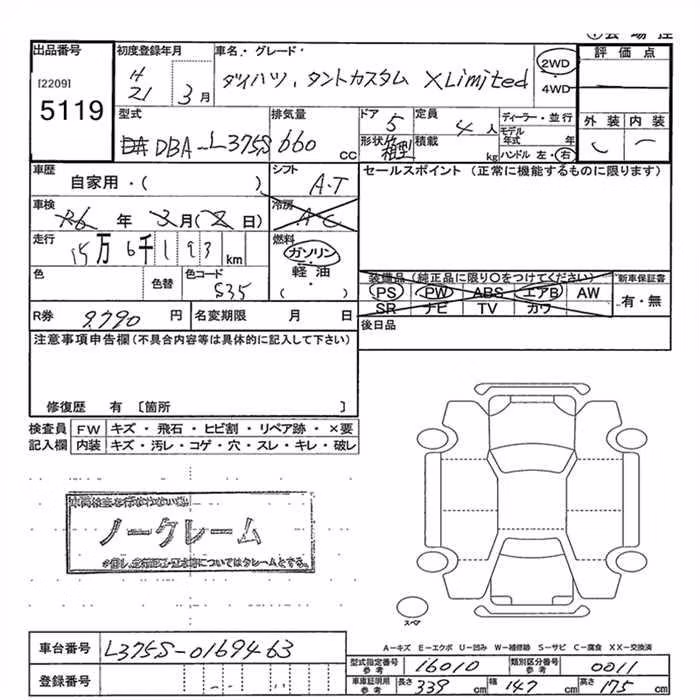 出品番号
[2209]
5119
初度登録年月
H
21 3月
車名・グレード
ダイハツ、タントカスタム XLimited
2WD
・
4WD
評価点
外装 内装
型式
DBA-L375S
排気量
660 cc
ドア 5
形状 箱型
定員
4人
積載
kg
ディーラー・並行
モデル年式 年
ハンドル 左・右
車歴
自家用・( )
シフト
A・T
セールスポイント (正常に機能するものに限ります)
車検
R6年 3月(2日)
冷房
A C
走行
15万6千193 km
燃料
ガソリン
・
軽油
・
( )
色
色替
色コード
S35
装備品 (純正品に限り○をつけてください)
PS PW ABS エアB AW
SR ナビ TV カワ
新車保証書
有・無
R券 9,790 円
名変期限 月 日
後日品
注意事項申告欄(不具合内容等は具体的に記入して下さい)
修復歴 有 [箇所 ]
検査員 FW キズ・飛石・ヒビ割・リペア跡・×要
記入欄 内装 キズ・汚レ・コゲ・穴・スレ・キレ・破レ
車両検査を行なわない為、
ノークレーム
についてはクレームとする。
スペア
車台番号 L375S-0169463
A-キズ E-エクボ U-凹み W-補修跡 S-サビ C-腐食 XX-交換済
登録番号
型式指定番号 参考 16010
類別区分番号 参考 0011
車庫証明用 参考 長さ 339 cm 幅 147 cm 高さ 175 cm